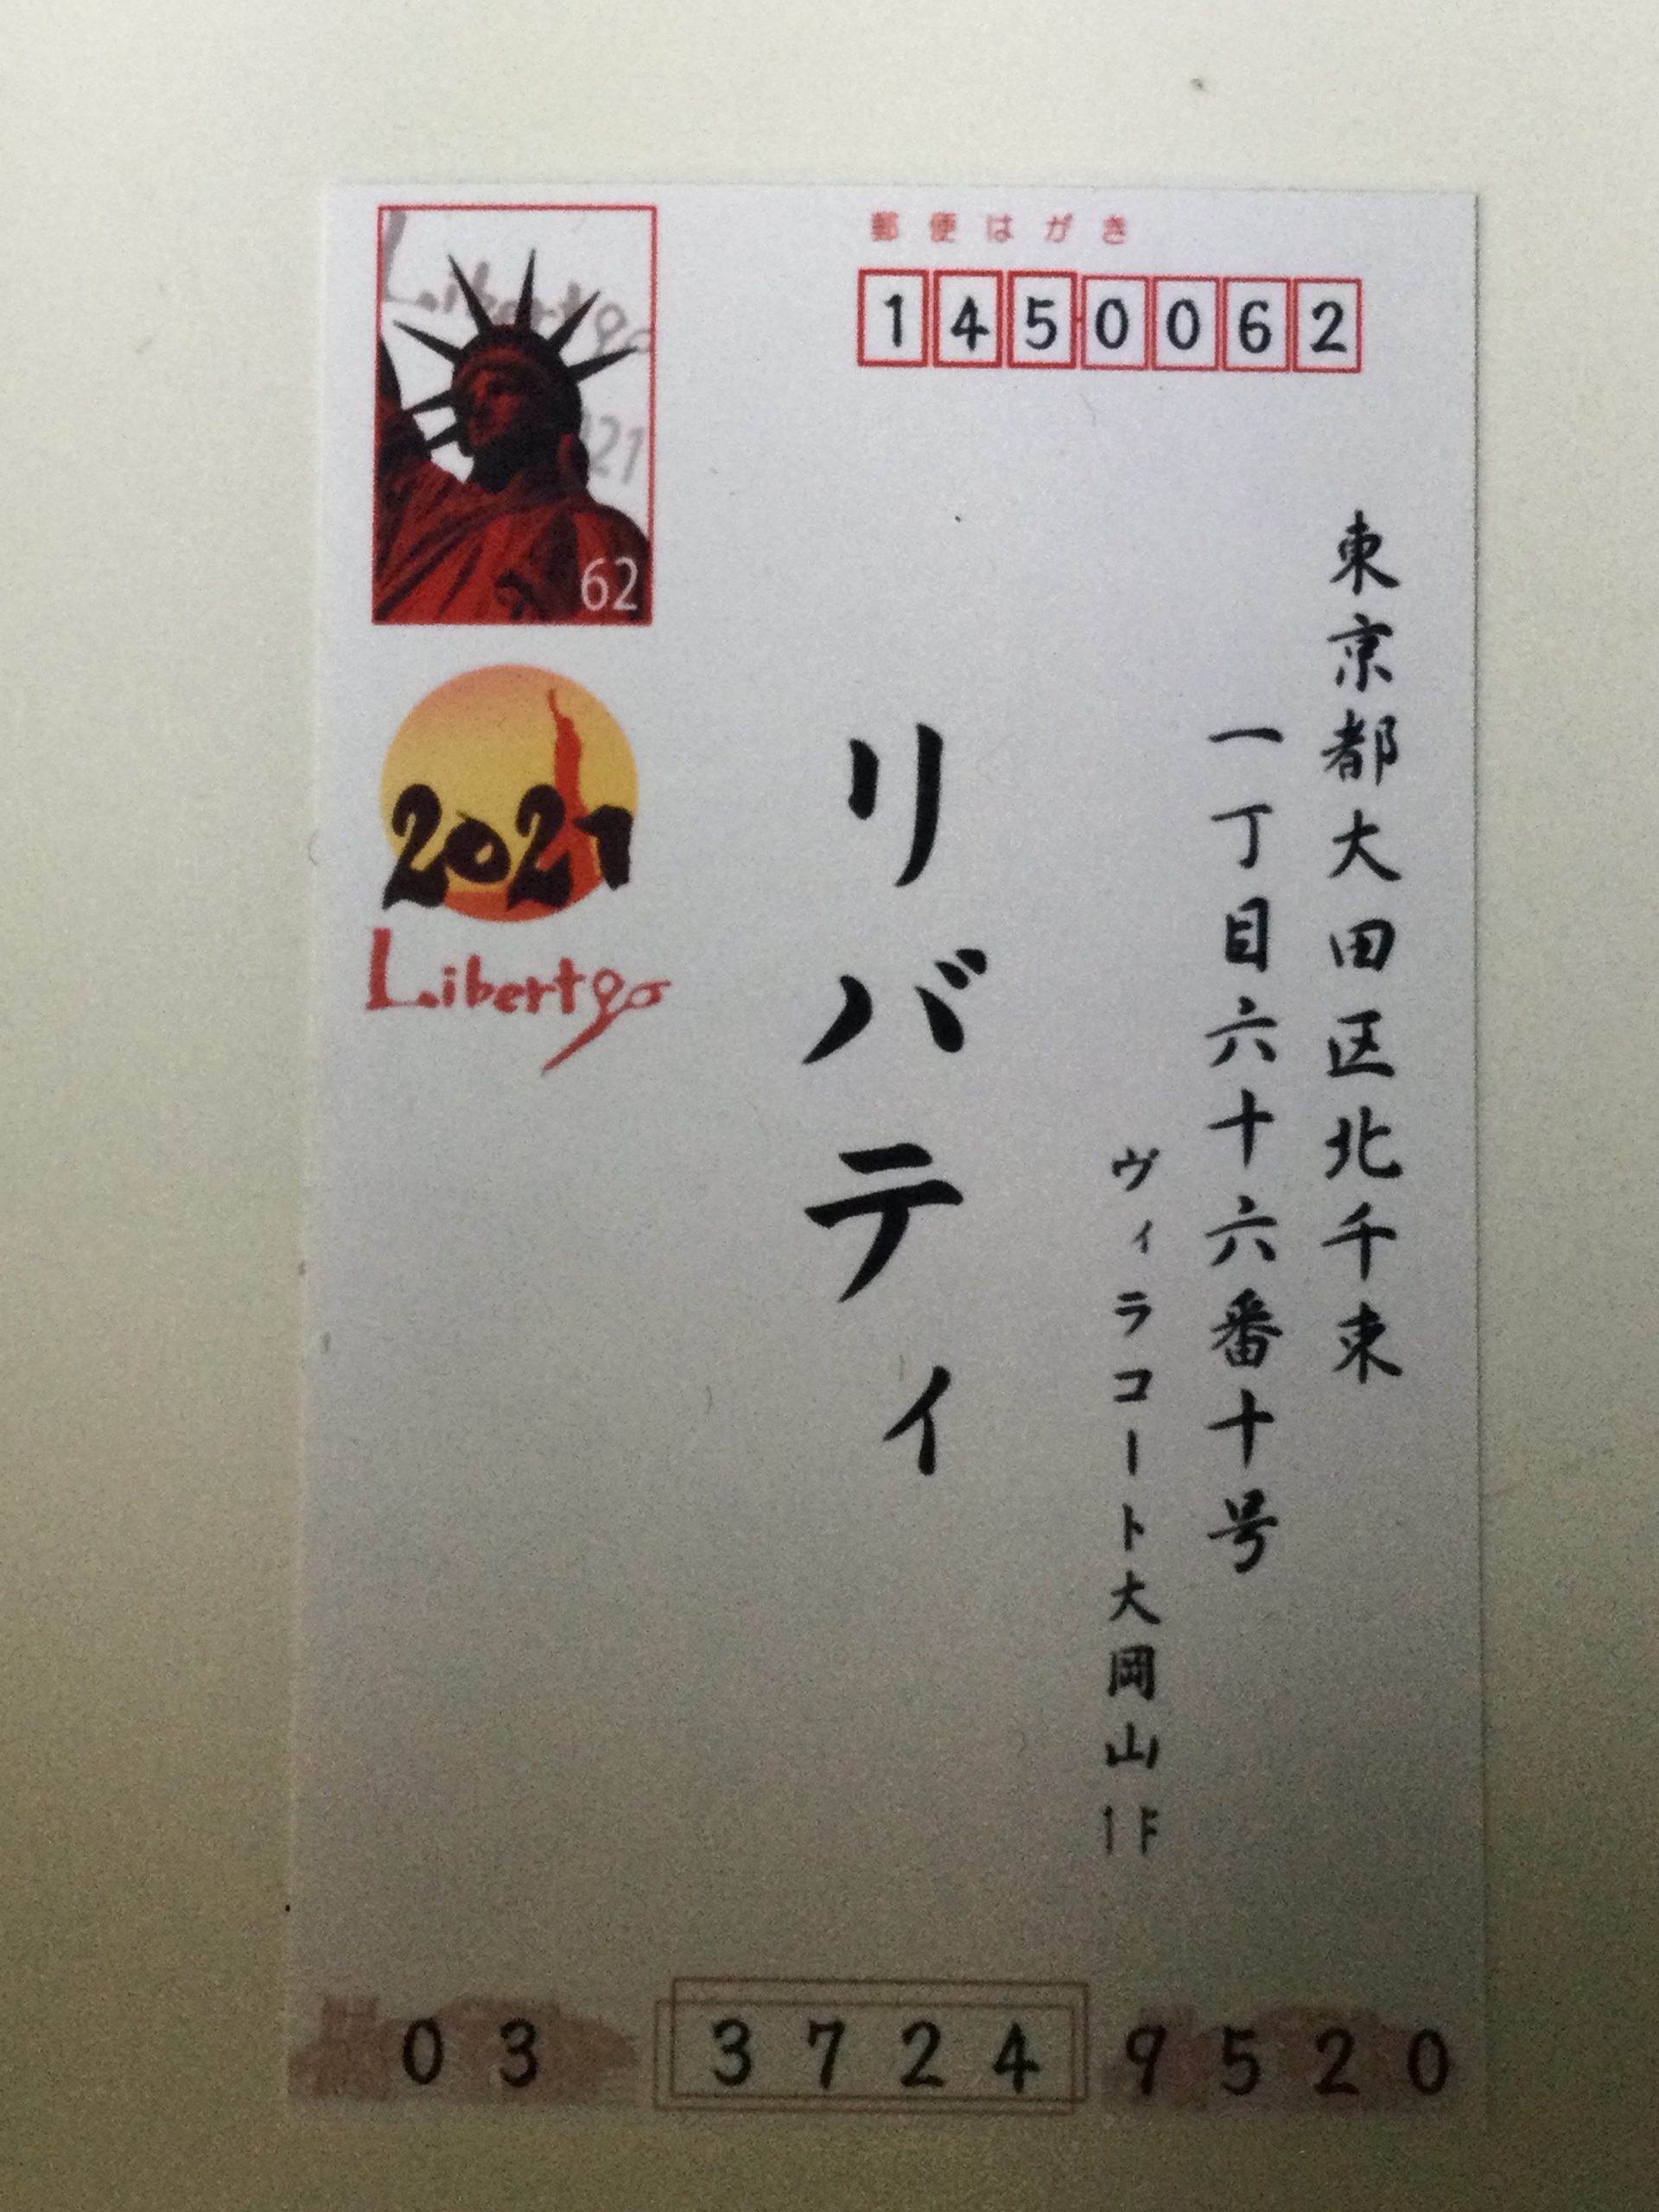 郵便はがき
1450062
東京都大田区北千束
一丁目六十六番十号
ヴィラコート大岡山1F
リバティ
Liberty
21
62
2021
Liberty
03 3724 9520